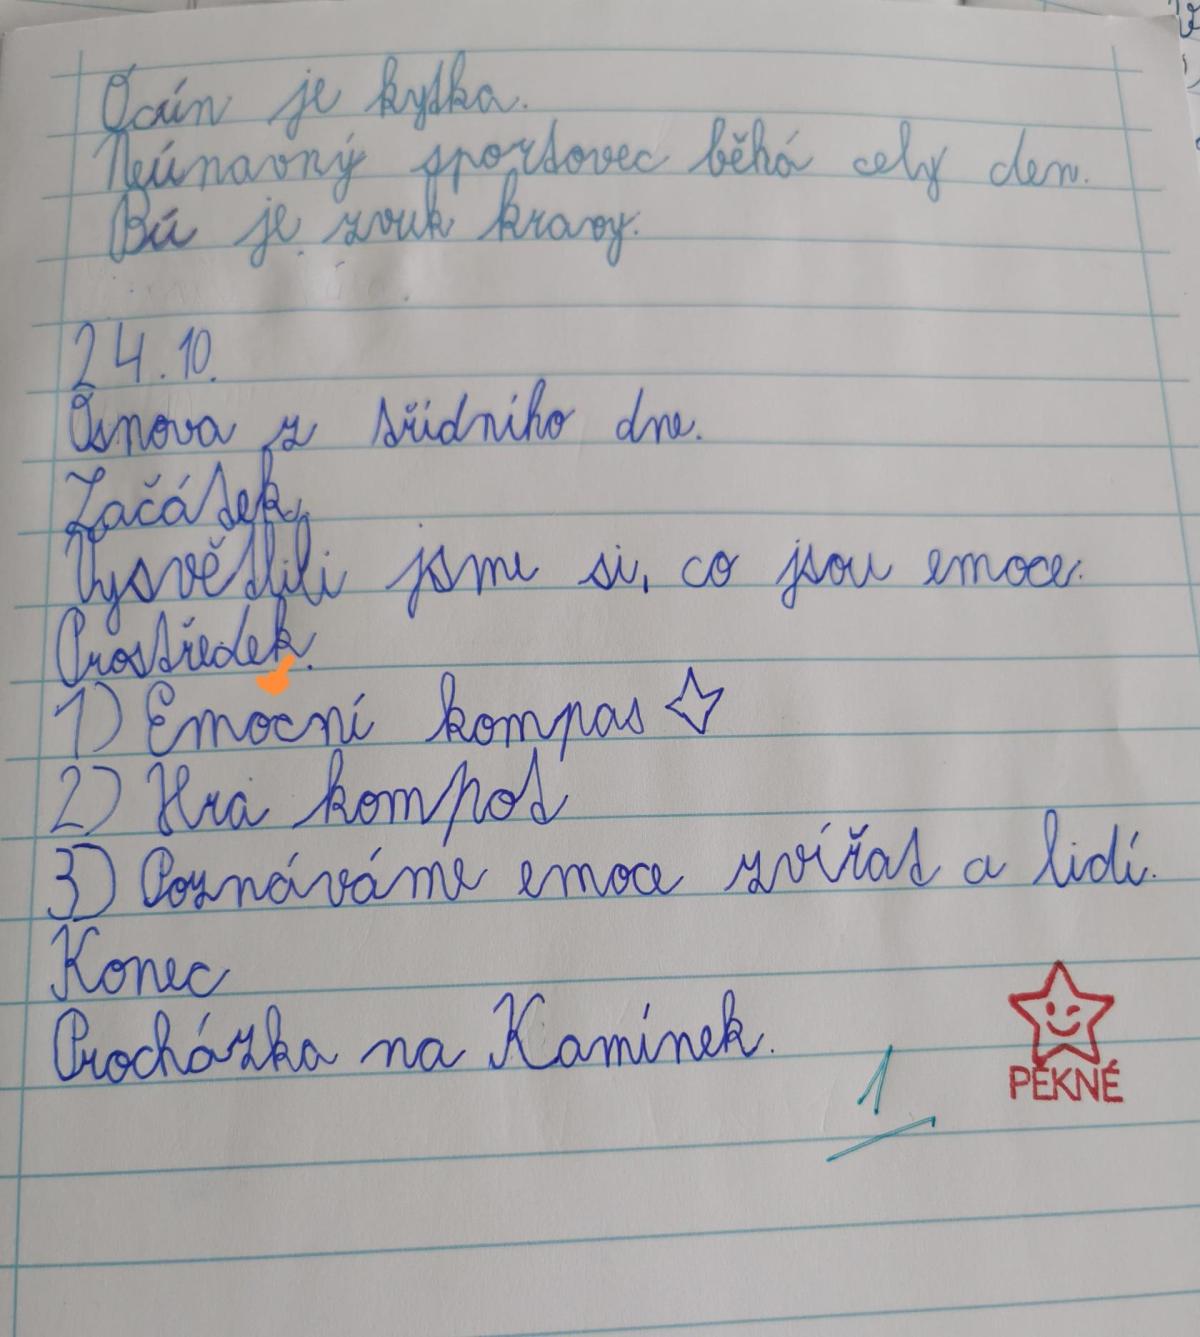 Ocún je kytka.
Neúnavný sportovec běhá celý den.
Bú je zvuk kravy.
24.10.
Osnova z třídního dne.
Začátek.
Vysvětlili jsme si, co jsou emoce.
Prostředek.
1) Emocní kompas
2) Hra kompot
3) Poznáváme emoce zvířat a lidí.
Konec
Procházka na Kamínek.
1
PĚKNÉ